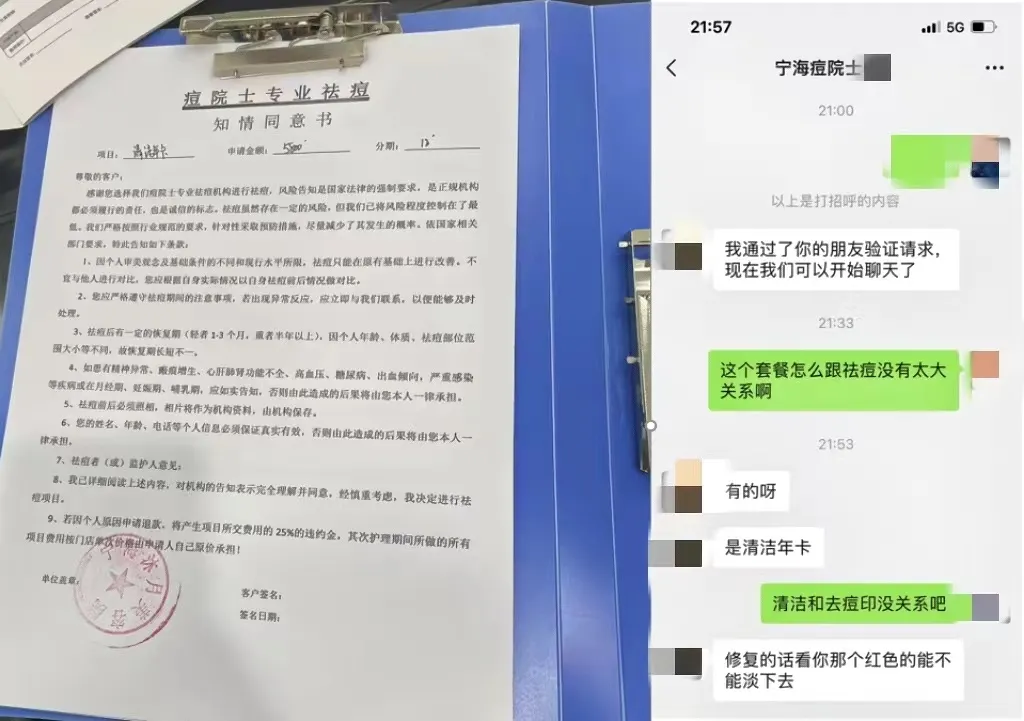 痘院士专业祛痘
知情同意书
项目：清洁卡 申请金额：5800 分期：12
尊敬的客户：
感谢您选择我们痘院士专业祛痘机构进行祛痘，风险告知是国家法律的强制要求，是正规机构
都必须履行的责任，也是诚信的标志。祛痘虽然存在一定的风险，但我们已将风险程度控制在了最
低。我们严格按照行业规范的要求，针对性采取预防措施，尽量减少了其发生的概率。依国家相关
部门要求，特此告知如下条款：
1、因个人审美观念及基础条件的不同和现行水平所限，祛痘只能在原有基础上进行改善、不
宜与他人进行对比，您应根据自身实际情况以自身祛痘前后情况做对比。
2、您应严格遵守祛痘期间的注意事项，若出现异常反应，应立即与我们联系，以便能够及时
处理。
3、祛痘后有一定的恢复期（轻者1-3个月，重者半年以上），因个人年龄、体质、祛痘部位范
围大小等不同，故恢复期长短不一。
4、如患有精神异常、瘢痕增生、心肝肺肾功能不全、高血压、糖尿病、出血倾向，严重感染
等疾病或在月经期、妊娠期、哺乳期，应如实告知，否则由此造成的后果将由您本人一律承担。
5、祛痘前后必须照相，相片将作为机构资料，由机构保存。
6、您的姓名、年龄、电话等个人信息必须保证真实有效，否则由此造成的后果将由您本人一
律承担。
7、祛痘者（或）监护人意见：
8、我已详细阅读上述内容，对机构的告知表示完全理解并同意，经慎重考虑，我决定进行祛
痘项目。
9、若因个人原因申请退款，将产生项目所交费用的25%的违约金，其次护理期间所做的所有
项目费用按门店单次价格由申请人自己原价承担！
单位盖章：
客户签名：
签名日期：
21:57
5G
宁海痘院士
21:00
以上是打招呼的内容
我通过了你的朋友验证请求，
现在我们可以开始聊天了
21:33
这个套餐怎么跟祛痘没有太大
关系啊
21:53
有的呀
是清洁年卡
清洁和去痘印没关系吧
修复的话看你那个红色的能不
能淡下去